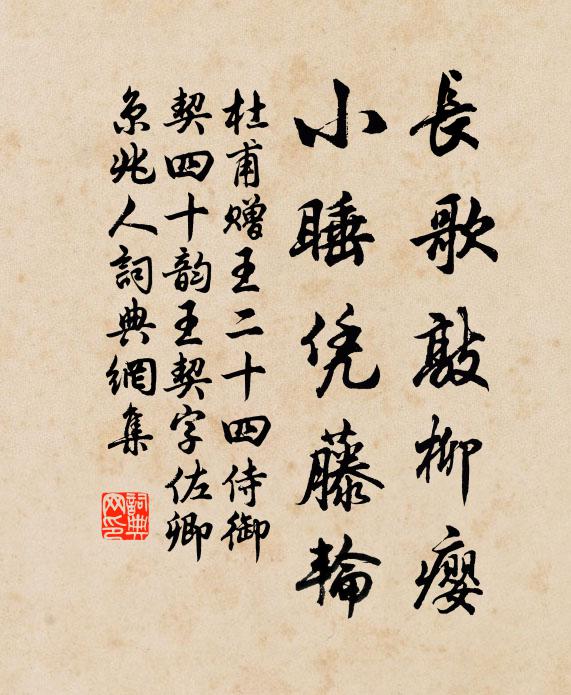 長歌敲柳癭
小睡凭藤輪
杜甫赠王二十四侍御
契四十韵王契字佐卿
京兆人詞典網集
詞典
网印